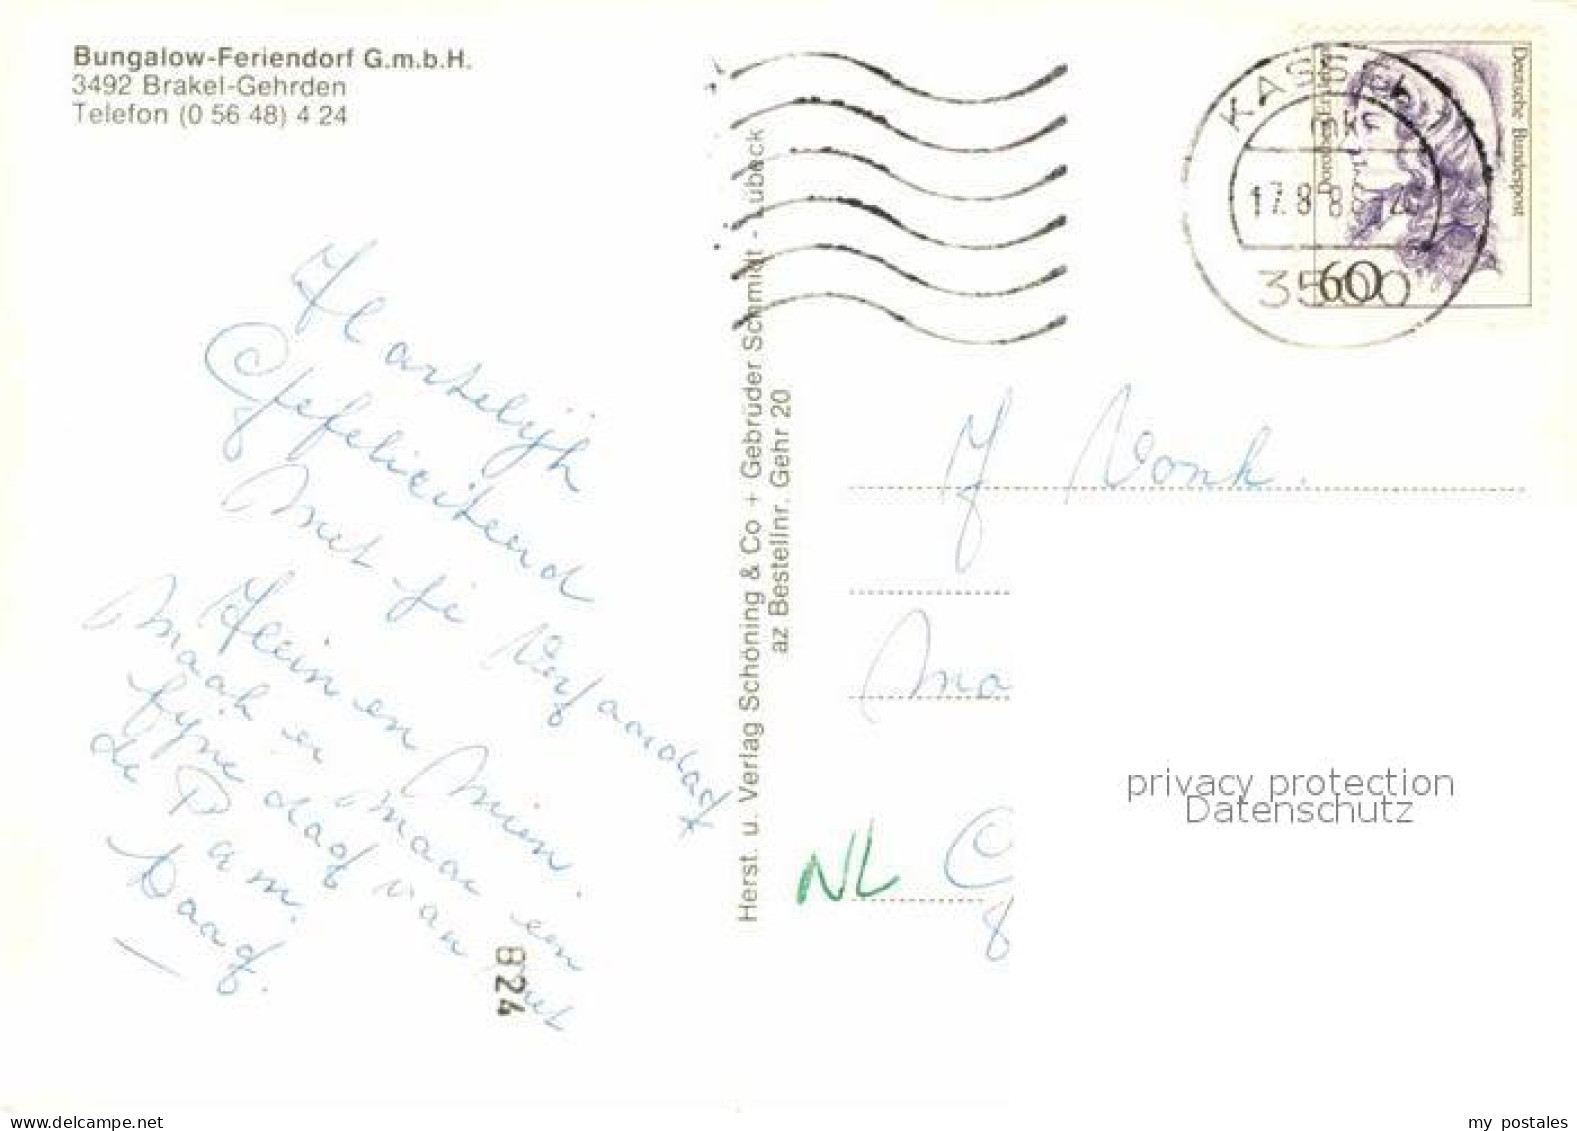 Bungalow-Feriendorf G.m.b.H.
3492 Brakel-Gehrden
Telefon (0 56 48) 4 24
Hartelijk
Gefeliciteerd
met je Verjaardag
Hein en Mien.
Maak er maar een
fijne dag van met
de Pam.
Daag.
824
Herst. u. Verlag Schöning & Co + Gebrüder Schmidt - Lübeck
az Bestellnr. Gehr 20
KASSEL 1
mk
17.8.8
3500
Deutsche Bundespost
Dorothea Erxleben
60
J Vonk.
Ma
NL G
privacy protection
Datenschutz
www.delcampe.net
my postales